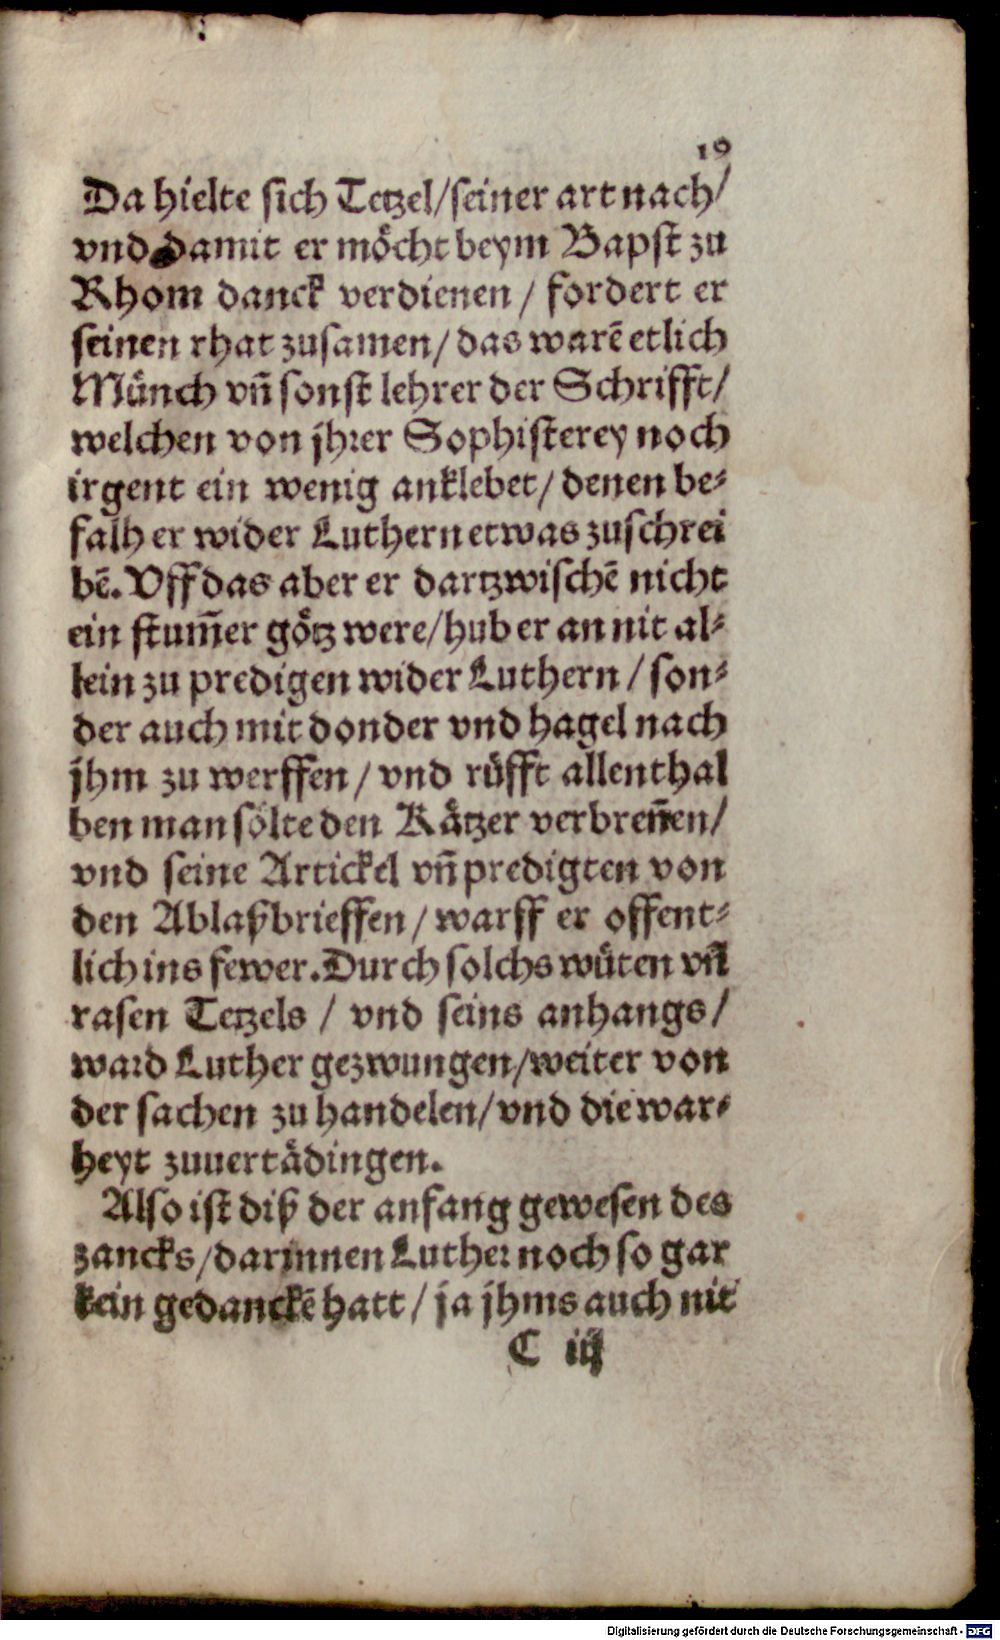 19
Da hielte sich Tetzel/seiner art nach/
vnd damit er möcht beym Bapst zu
Rhom danck verdienen / fordert er
seinen rhat zusamen/das warē etlich
Münch vn̄ sonst lehrer der Schrifft/
welchen von jhrer Sophisterey noch
irgent ein wenig anklebet/denen be⸗
falh er wider Luthern etwas zuschrei
bē. Vff das aber er dartzwischē nicht
ein stum̄er götz were/hub er an nit al⸗
lein zu predigen wider Luthern/son⸗
der auch mit donder vnd hagel nach
jhm zu werffen/vnd rüfft allenthal
ben man sölte den Kätzer verbren̄en/
vnd seine Artickel vn̄ predigten von
den Ablaßbrieffen/warff er offent⸗
lich ins fewer. Durch solchs wüten vn̄
rasen Tetzels / vnd seins anhangs/
ward Luther gezwungen/weiter von
der sachen zu handelen/vnd die war⸗
heyt zuuertädingen.
Also ist diß der anfang gewesen des
zancks/darinnen Luther noch so gar
kein gedanckē hatt/ja jhms auch nit
C iij
Digitalisierung gefördert durch die Deutsche Forschungsgemeinschaft - DFG